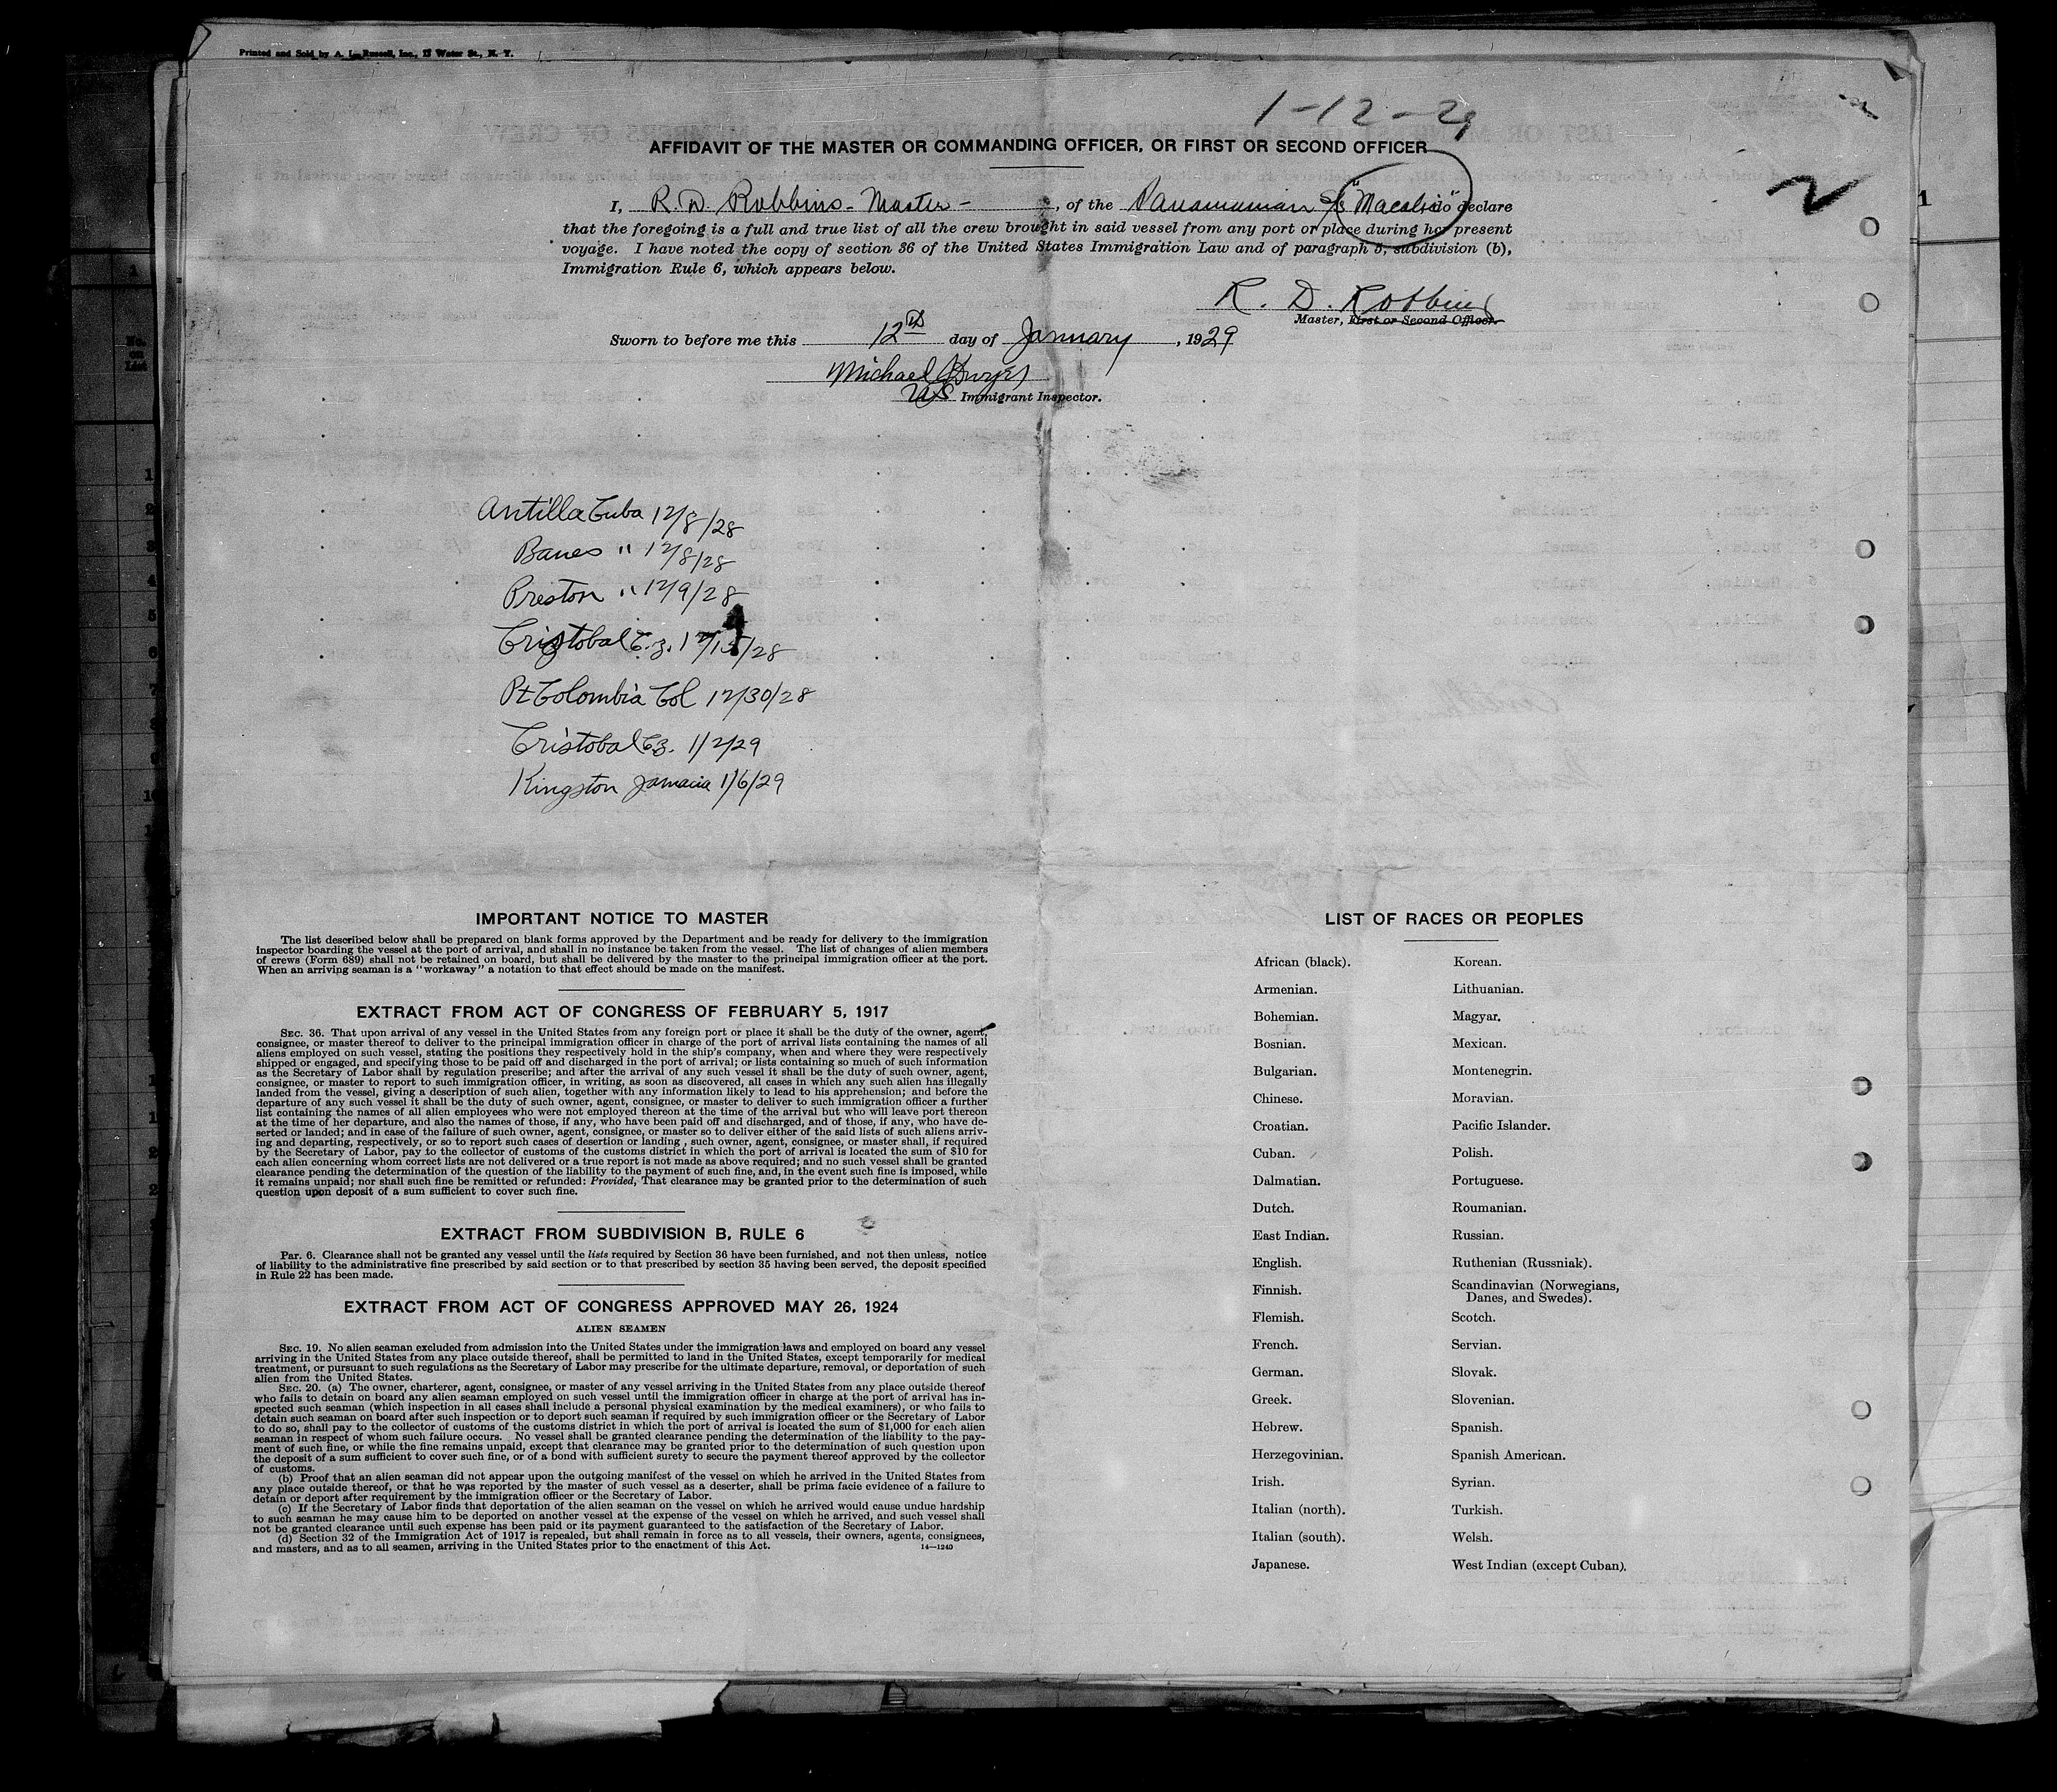 Printed and Sold by A. L. Russell, Inc., 15 Water St., N. Y.
1-12-29
AFFIDAVIT OF THE MASTER OR COMMANDING OFFICER, OR FIRST OR SECOND OFFICER
2
I, R. D. Robbins - Master -, of the Panamanian S/S "Macabi" do declare
that the foregoing is a full and true list of all the crew brought in said vessel from any port or place during her present
voyage. I have noted the copy of section 36 of the United States Immigration Law and of paragraph 5, subdivision (b),
Immigration Rule 6, which appears below.
R. D. Robbins
Master, First or Second Officer.
Sworn to before me this 12th day of January, 1929
Michael Dwyer
US Immigrant Inspector.
Antilla Cuba 12/8/28
Banes " 12/8/28
Preston " 12/9/28
Cristobal C.Z. 12/15/28
Pt Colombia Col 12/30/28
Cristobal C.Z. 1/2/29
Kingston Jamacia 1/6/29
IMPORTANT NOTICE TO MASTER
The list described below shall be prepared on blank forms approved by the Department and be ready for delivery to the immigration
inspector boarding the vessel at the port of arrival, and shall in no instance be taken from the vessel. The list of changes of alien members
of crews (Form 689) shall not be retained on board, but shall be delivered by the master to the principal immigration officer at the port.
When an arriving seaman is a "workaway" a notation to that effect should be made on the manifest.
EXTRACT FROM ACT OF CONGRESS OF FEBRUARY 5, 1917
SEC. 36. That upon arrival of any vessel in the United States from any foreign port or place it shall be the duty of the owner, agent,
consignee, or master thereof to deliver to the principal immigration officer in charge of the port of arrival lists containing the names of all
aliens employed on such vessel, stating the positions they respectively hold in the ship's company, when and where they were respectively
shipped or engaged, and specifying those to be paid off and discharged in the port of arrival; or lists containing so much of such information
as the Secretary of Labor shall by regulation prescribe; and after the arrival of any such vessel it shall be the duty of such owner, agent,
consignee, or master to report to such immigration officer, in writing, as soon as discovered, all cases in which any such alien has illegally
landed from the vessel, giving a description of such alien, together with any information likely to lead to his apprehension; and before the
departure of any such vessel it shall be the duty of such owner, agent, consignee, or master to deliver to such immigration officer a further
list containing the names of all alien employees who were not employed thereon at the time of the arrival but who will leave port thereon
at the time of her departure, and also the names of those, if any, who have been paid off and discharged, and of those, if any, who have de-
serted or landed; and in case of the failure of such owner, agent, consignee, or master so to deliver either of the said lists of such aliens arriv-
ing and departing, respectively, or so to report such cases of desertion or landing , such owner, agent, consignee, or master shall, if required
by the Secretary of Labor, pay to the collector of customs of the customs district in which the port of arrival is located the sum of $10 for
each alien concerning whom correct lists are not delivered or a true report is not made as above required; and no such vessel shall be granted
clearance pending the determination of the question of the liability to the payment of such fine, and, in the event such fine is imposed, while
it remains unpaid; nor shall such fine be remitted or refunded: Provided, That clearance may be granted prior to the determination of such
question upon deposit of a sum sufficient to cover such fine.
EXTRACT FROM SUBDIVISION B, RULE 6
Par. 6. Clearance shall not be granted any vessel until the lists required by Section 36 have been furnished, and not then unless, notice
of liability to the administrative fine prescribed by said section or to that prescribed by section 35 having been served, the deposit specified
in Rule 22 has been made.
EXTRACT FROM ACT OF CONGRESS APPROVED MAY 26, 1924
ALIEN SEAMEN
SEC. 19. No alien seaman excluded from admission into the United States under the immigration laws and employed on board any vessel
arriving in the United States from any place outside thereof, shall be permitted to land in the United States, except temporarily for medical
treatment, or pursuant to such regulations as the Secretary of Labor may prescribe for the ultimate departure, removal, or deportation of such
alien from the United States.
SEC. 20. (a) The owner, charterer, agent, consignee, or master of any vessel arriving in the United States from any place outside thereof
who fails to detain on board any alien seaman employed on such vessel until the immigration officer in charge at the port of arrival has in-
spected such seaman (which inspection in all cases shall include a personal physical examination by the medical examiners), or who fails to
detain such seaman on board after such inspection or to deport such seaman if required by such immigration officer or the Secretary of Labor
to do so, shall pay to the collector of customs of the customs district in which the port of arrival is located the sum of $1,000 for each alien
seaman in respect of whom such failure occurs. No vessel shall be granted clearance pending the determination of the liability to the pay-
ment of such fine, or while the fine remains unpaid, except that clearance may be granted prior to the determination of such question upon
the deposit of a sum sufficient to cover such fine, or of a bond with sufficient surety to secure the payment thereof approved by the collector
of customs.
(b) Proof that an alien seaman did not appear upon the outgoing manifest of the vessel on which he arrived in the United States from
any place outside thereof, or that he was reported by the master of such vessel as a deserter, shall be prima facie evidence of a failure to
detain or deport after requirement by the immigration officer or the Secretary of Labor.
(c) If the Secretary of Labor finds that deportation of the alien seaman on the vessel on which he arrived would cause undue hardship
to such seaman he may cause him to be deported on another vessel at the expense of the vessel on which he arrived, and such vessel shall
not be granted clearance until such expense has been paid or its payment guaranteed to the satisfaction of the Secretary of Labor.
(d) Section 32 of the Immigration Act of 1917 is repealed, but shall remain in force as to all vessels, their owners, agents, consignees,
and masters, and as to all seamen, arriving in the United States prior to the enactment of this Act.
14—1240
LIST OF RACES OR PEOPLES
African (black).
Armenian.
Bohemian.
Bosnian.
Bulgarian.
Chinese.
Croatian.
Cuban.
Dalmatian.
Dutch.
East Indian.
English.
Finnish.
Flemish.
French.
German.
Greek.
Hebrew.
Herzegovinian.
Irish.
Italian (north).
Italian (south).
Japanese.
Korean.
Lithuanian.
Magyar.
Mexican.
Montenegrin.
Moravian.
Pacific Islander.
Polish.
Portuguese.
Roumanian.
Russian.
Ruthenian (Russniak).
Scandinavian (Norwegians,
Danes, and Swedes).
Scotch.
Servian.
Slovak.
Slovenian.
Spanish.
Spanish American.
Syrian.
Turkish.
Welsh.
West Indian (except Cuban).